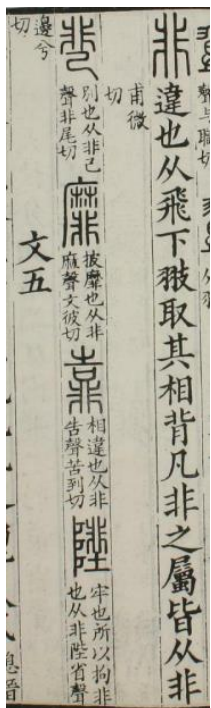 聲与職切
非 違也从飛下翄取其相背凡非之屬皆从非
甫微切
𩇨 別也从非己聲非尾切 靡 披靡也从非麻聲文彼切 靠 相違也从非告聲苦到切 陛 牢也所以拘非也从非陛省聲
邊兮切
文五